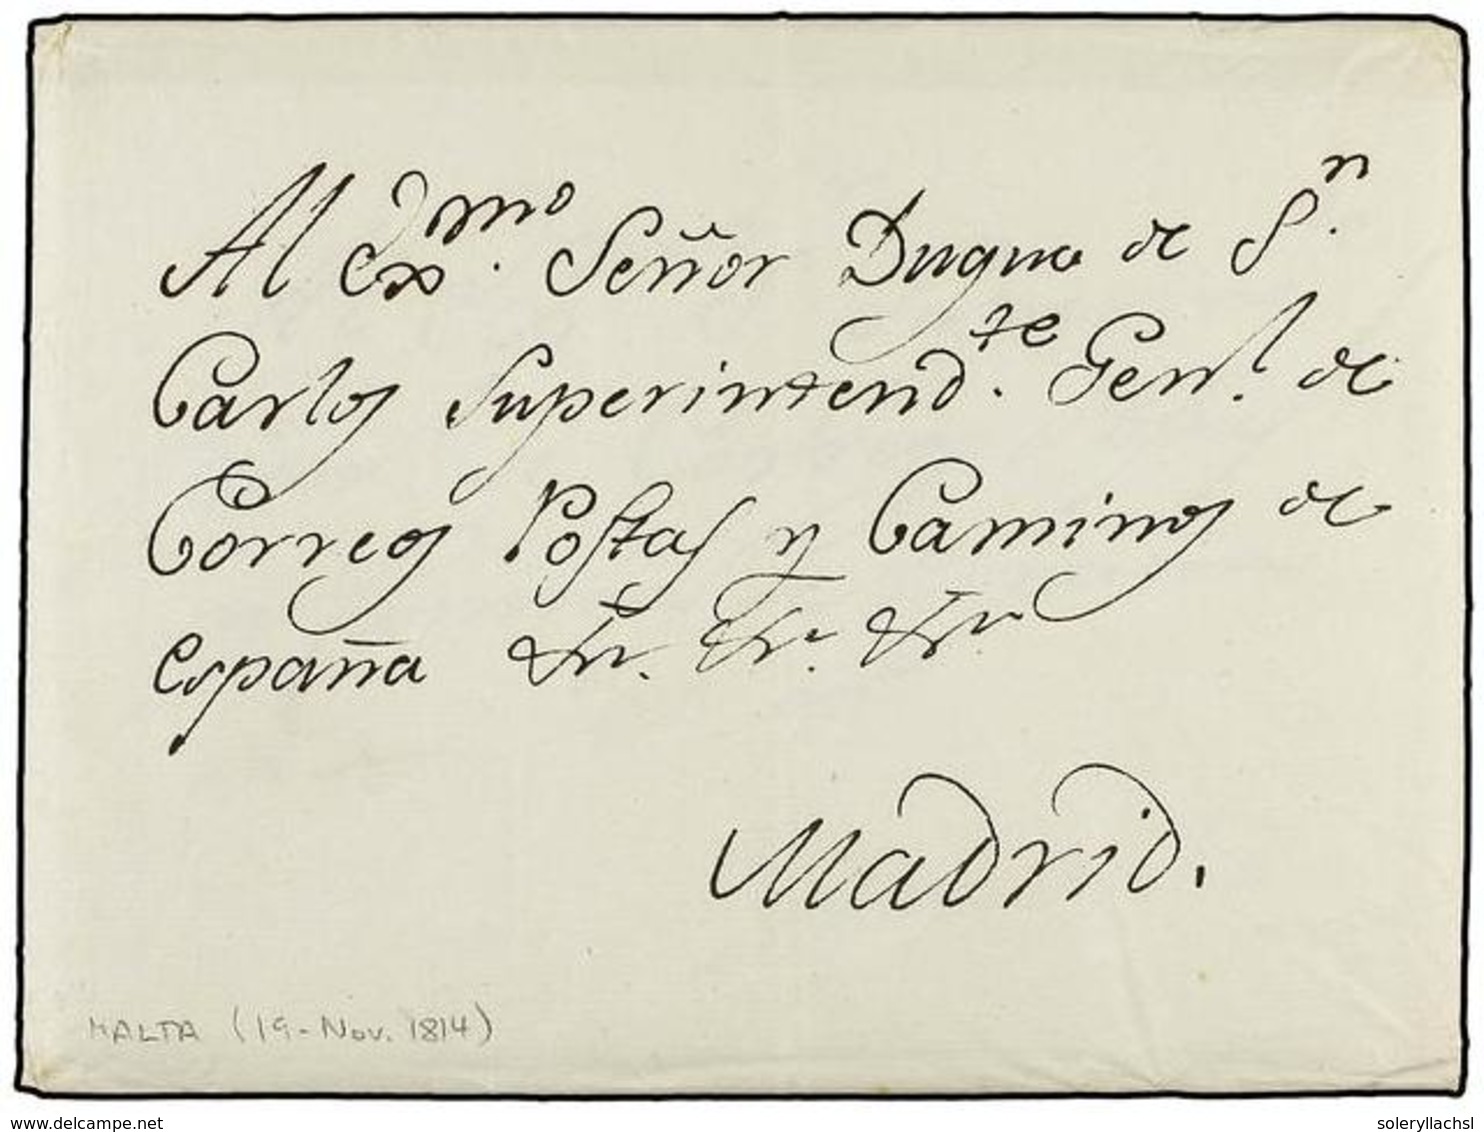 Al Exmo. Señor Duque de Sn.
Carlos Superintendte. Genl. de
Correos Postas y Caminos de
españa &r. &r. &r.
Madrid.
MALTA (19-Nov. 1814)
www.delcampe.net
soleryllachsl